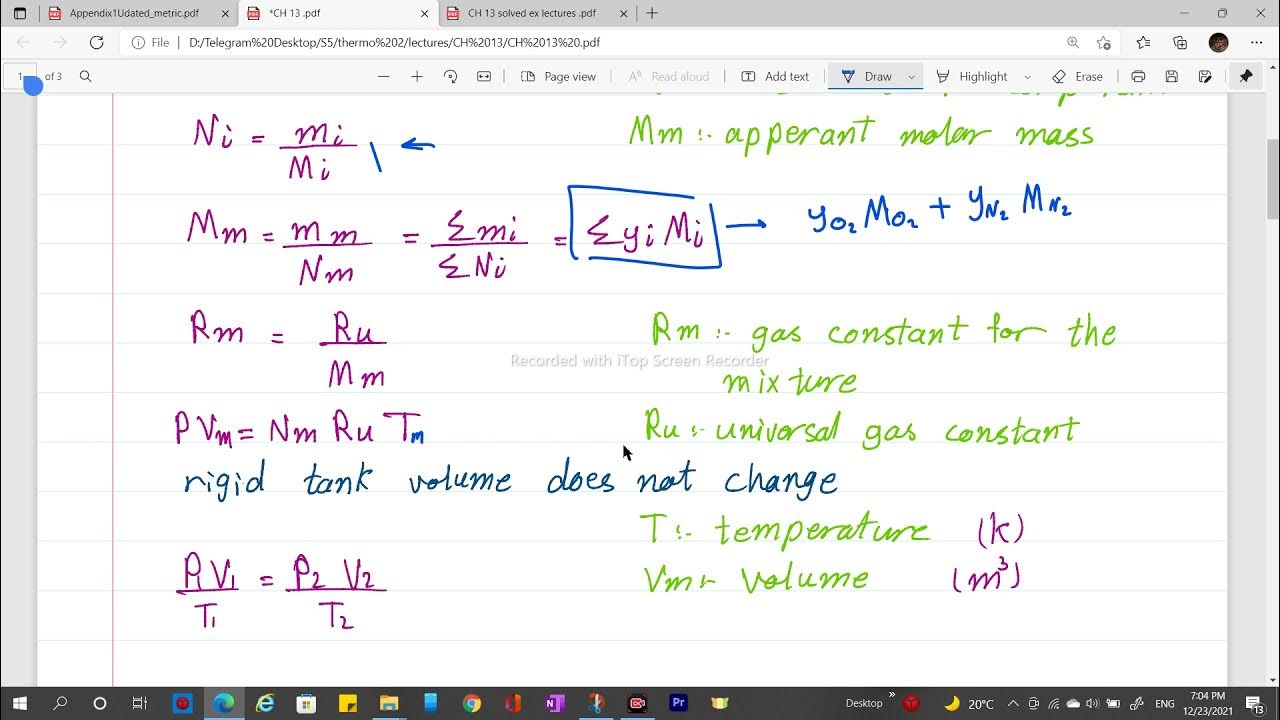 Appendix1Udated_metric.pdf
*CH 13 .pdf
CH 13 solved ex lectures .pdf
File
D:/Telegram%20Desktop/S5/thermo%202/lectures/CH%2013/CH%2013%20.pdf
1 of 3
Page view
Read aloud
Add text
Draw
Highlight
Erase
Ni = mi / Mi
Mm :- apperant molar mass
Mm = mm / Nm = Σmi / ΣNi = Σ yi Mi → yO2 MO2 + yN2 MN2
Rm = Ru / Mm
Rm :- gas constant for the
mixture
Recorded with iTop Screen Recorder
PVm = Nm Ru Tm
Ru :- universal gas constant
rigid tank volume does not change
T :- temperature (k)
P1 V1 / T1 = P2 V2 / T2
Vm :- volume (m³)
Desktop
20°C
ENG
7:04 PM
12/23/2021
13